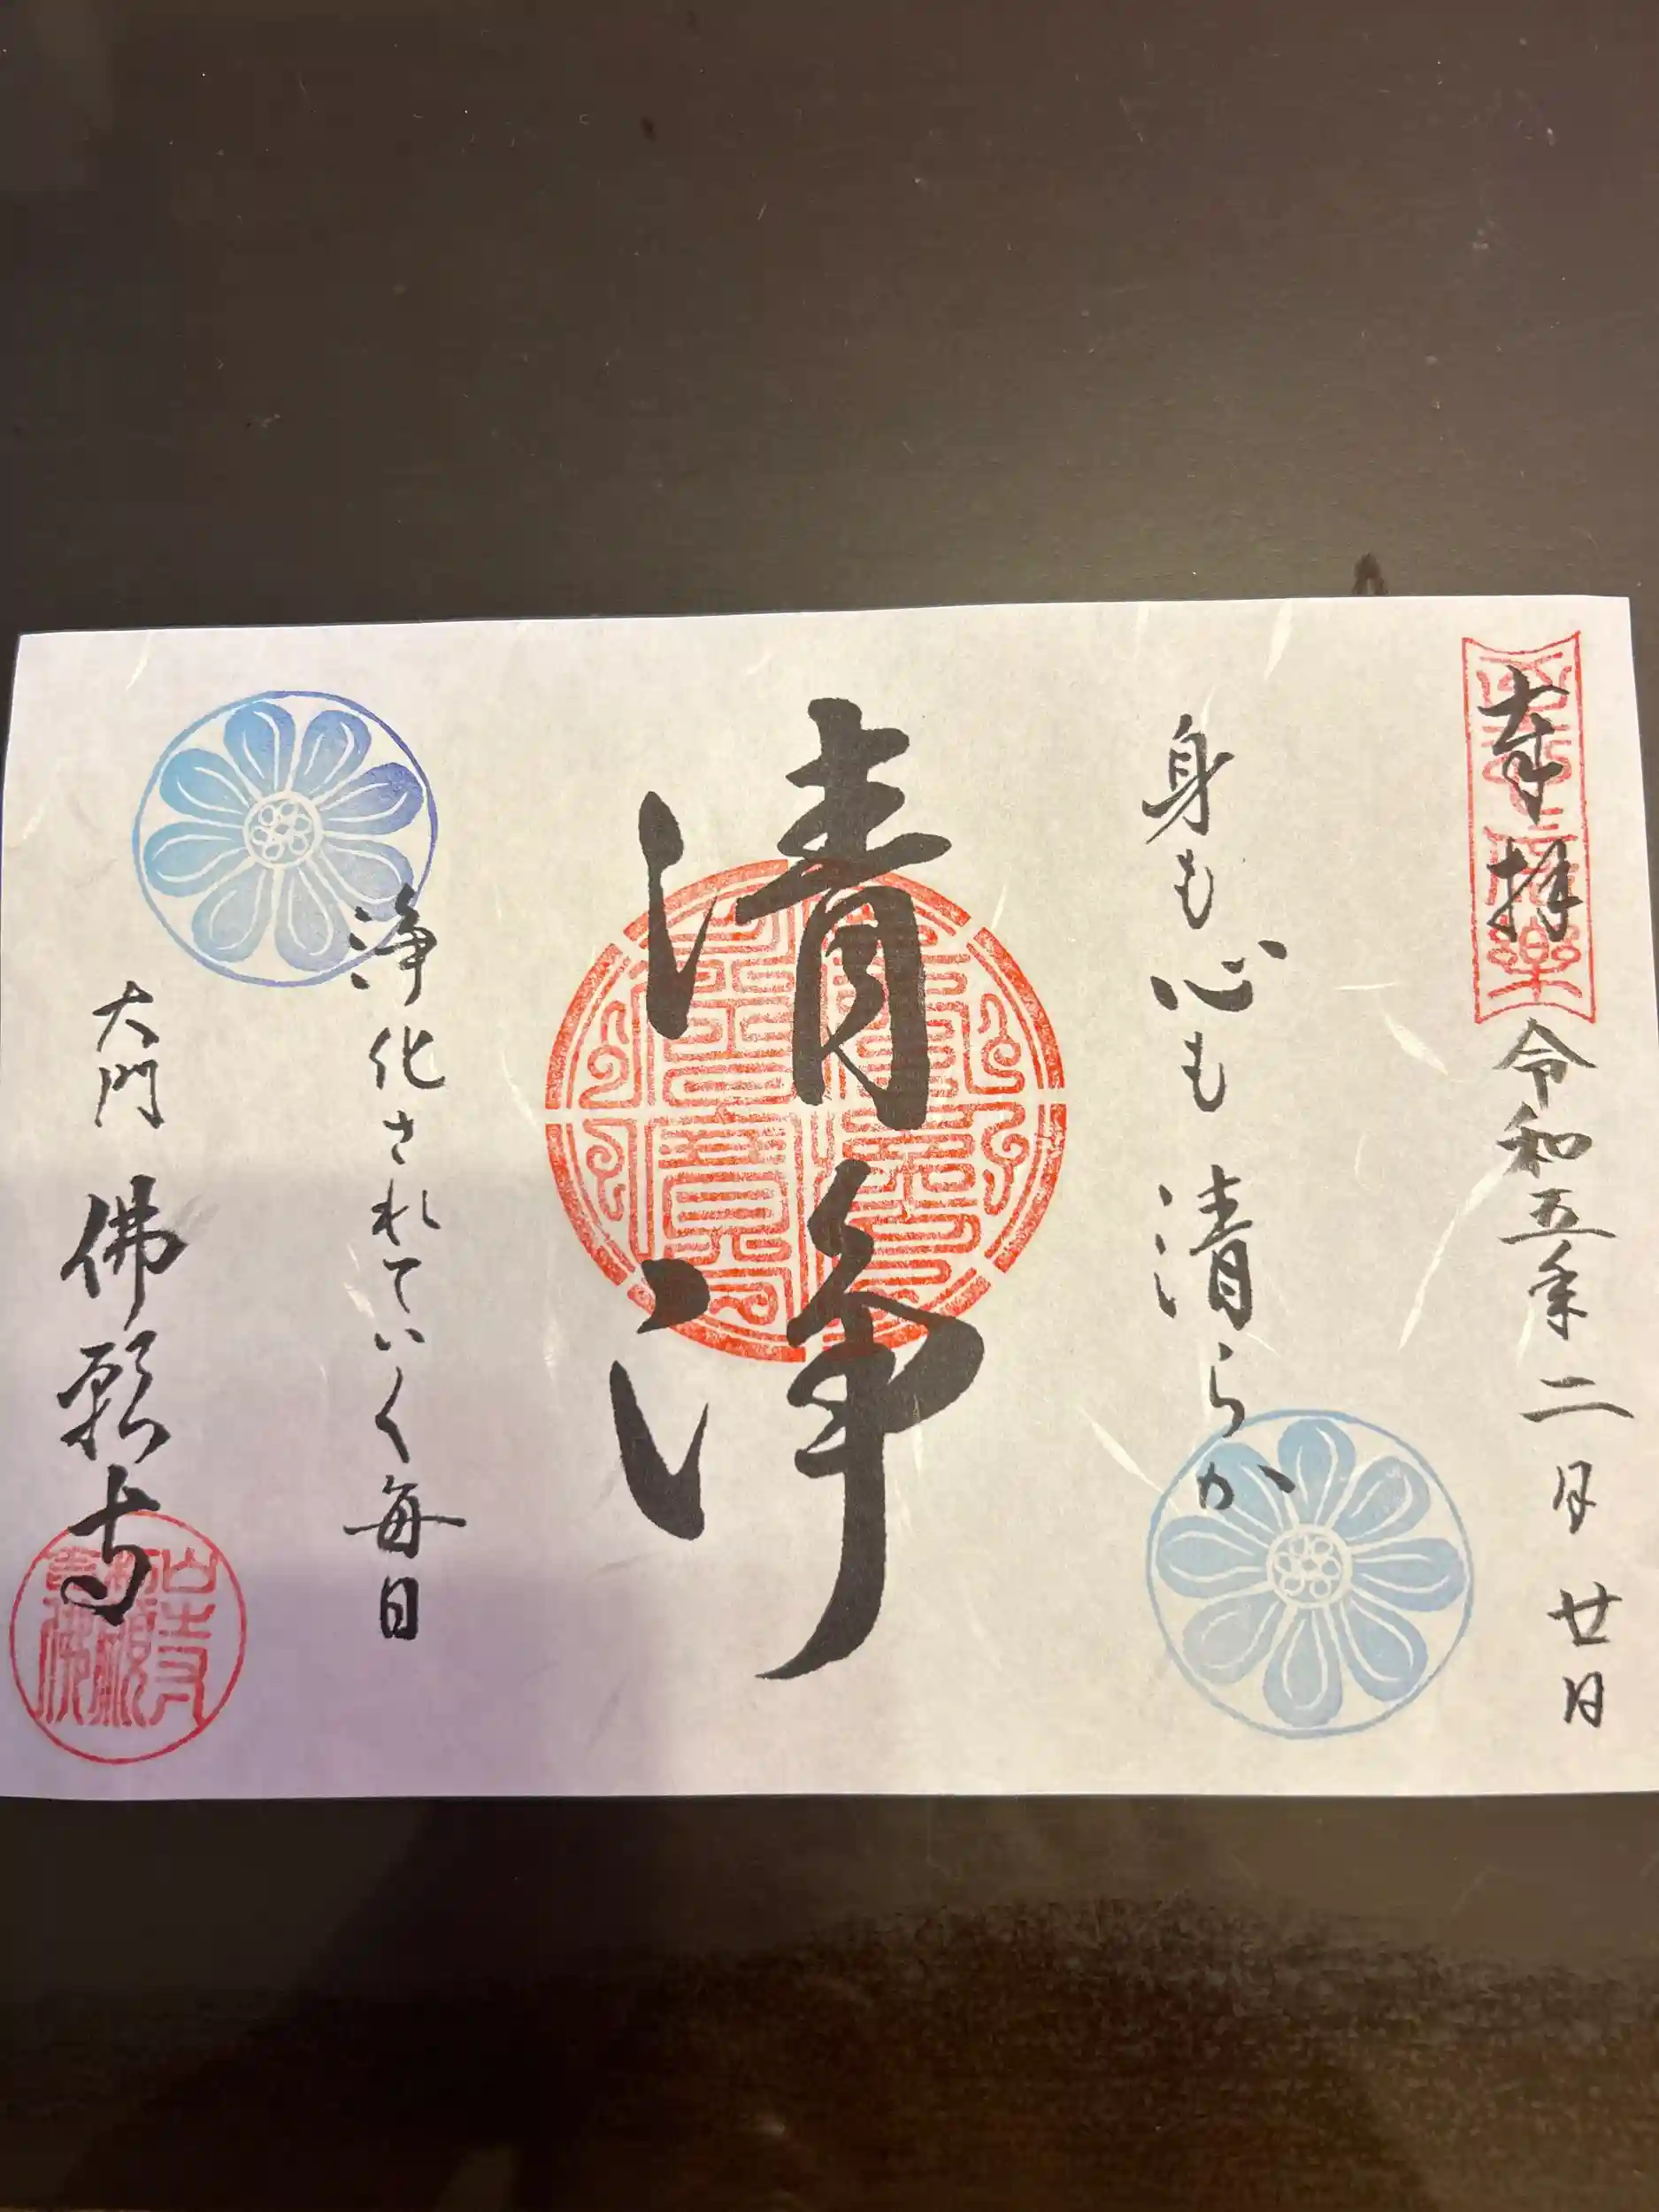 奉拝 令和五年二月廿日
身も心も清らか
清浄
浄化されていく毎日
大門 佛願寺